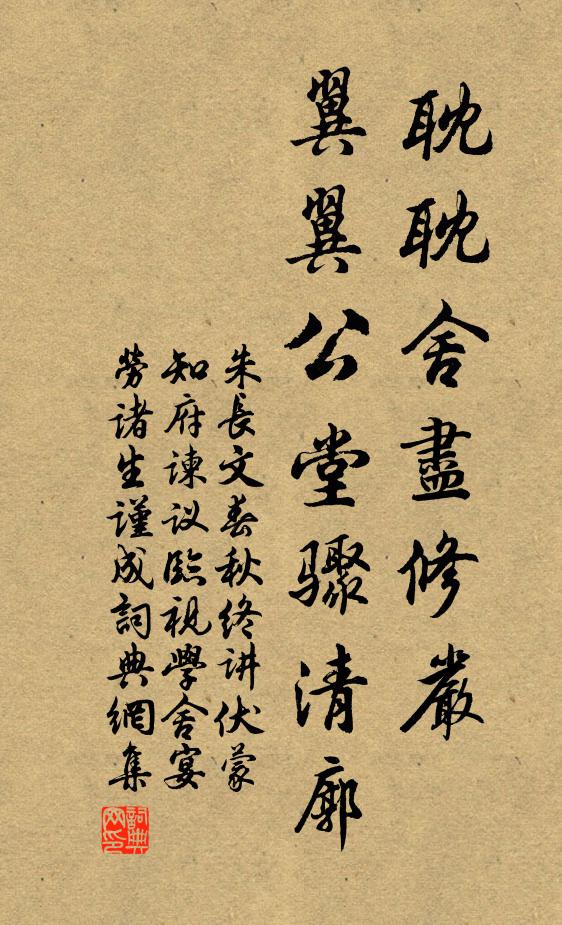 耽耽舍盡修嚴
翼翼公堂驟清廓
朱長文春秋终讲伏蒙
知府諫议臨視學舍宴
勞诸生謹成詞典網集
詞典网印